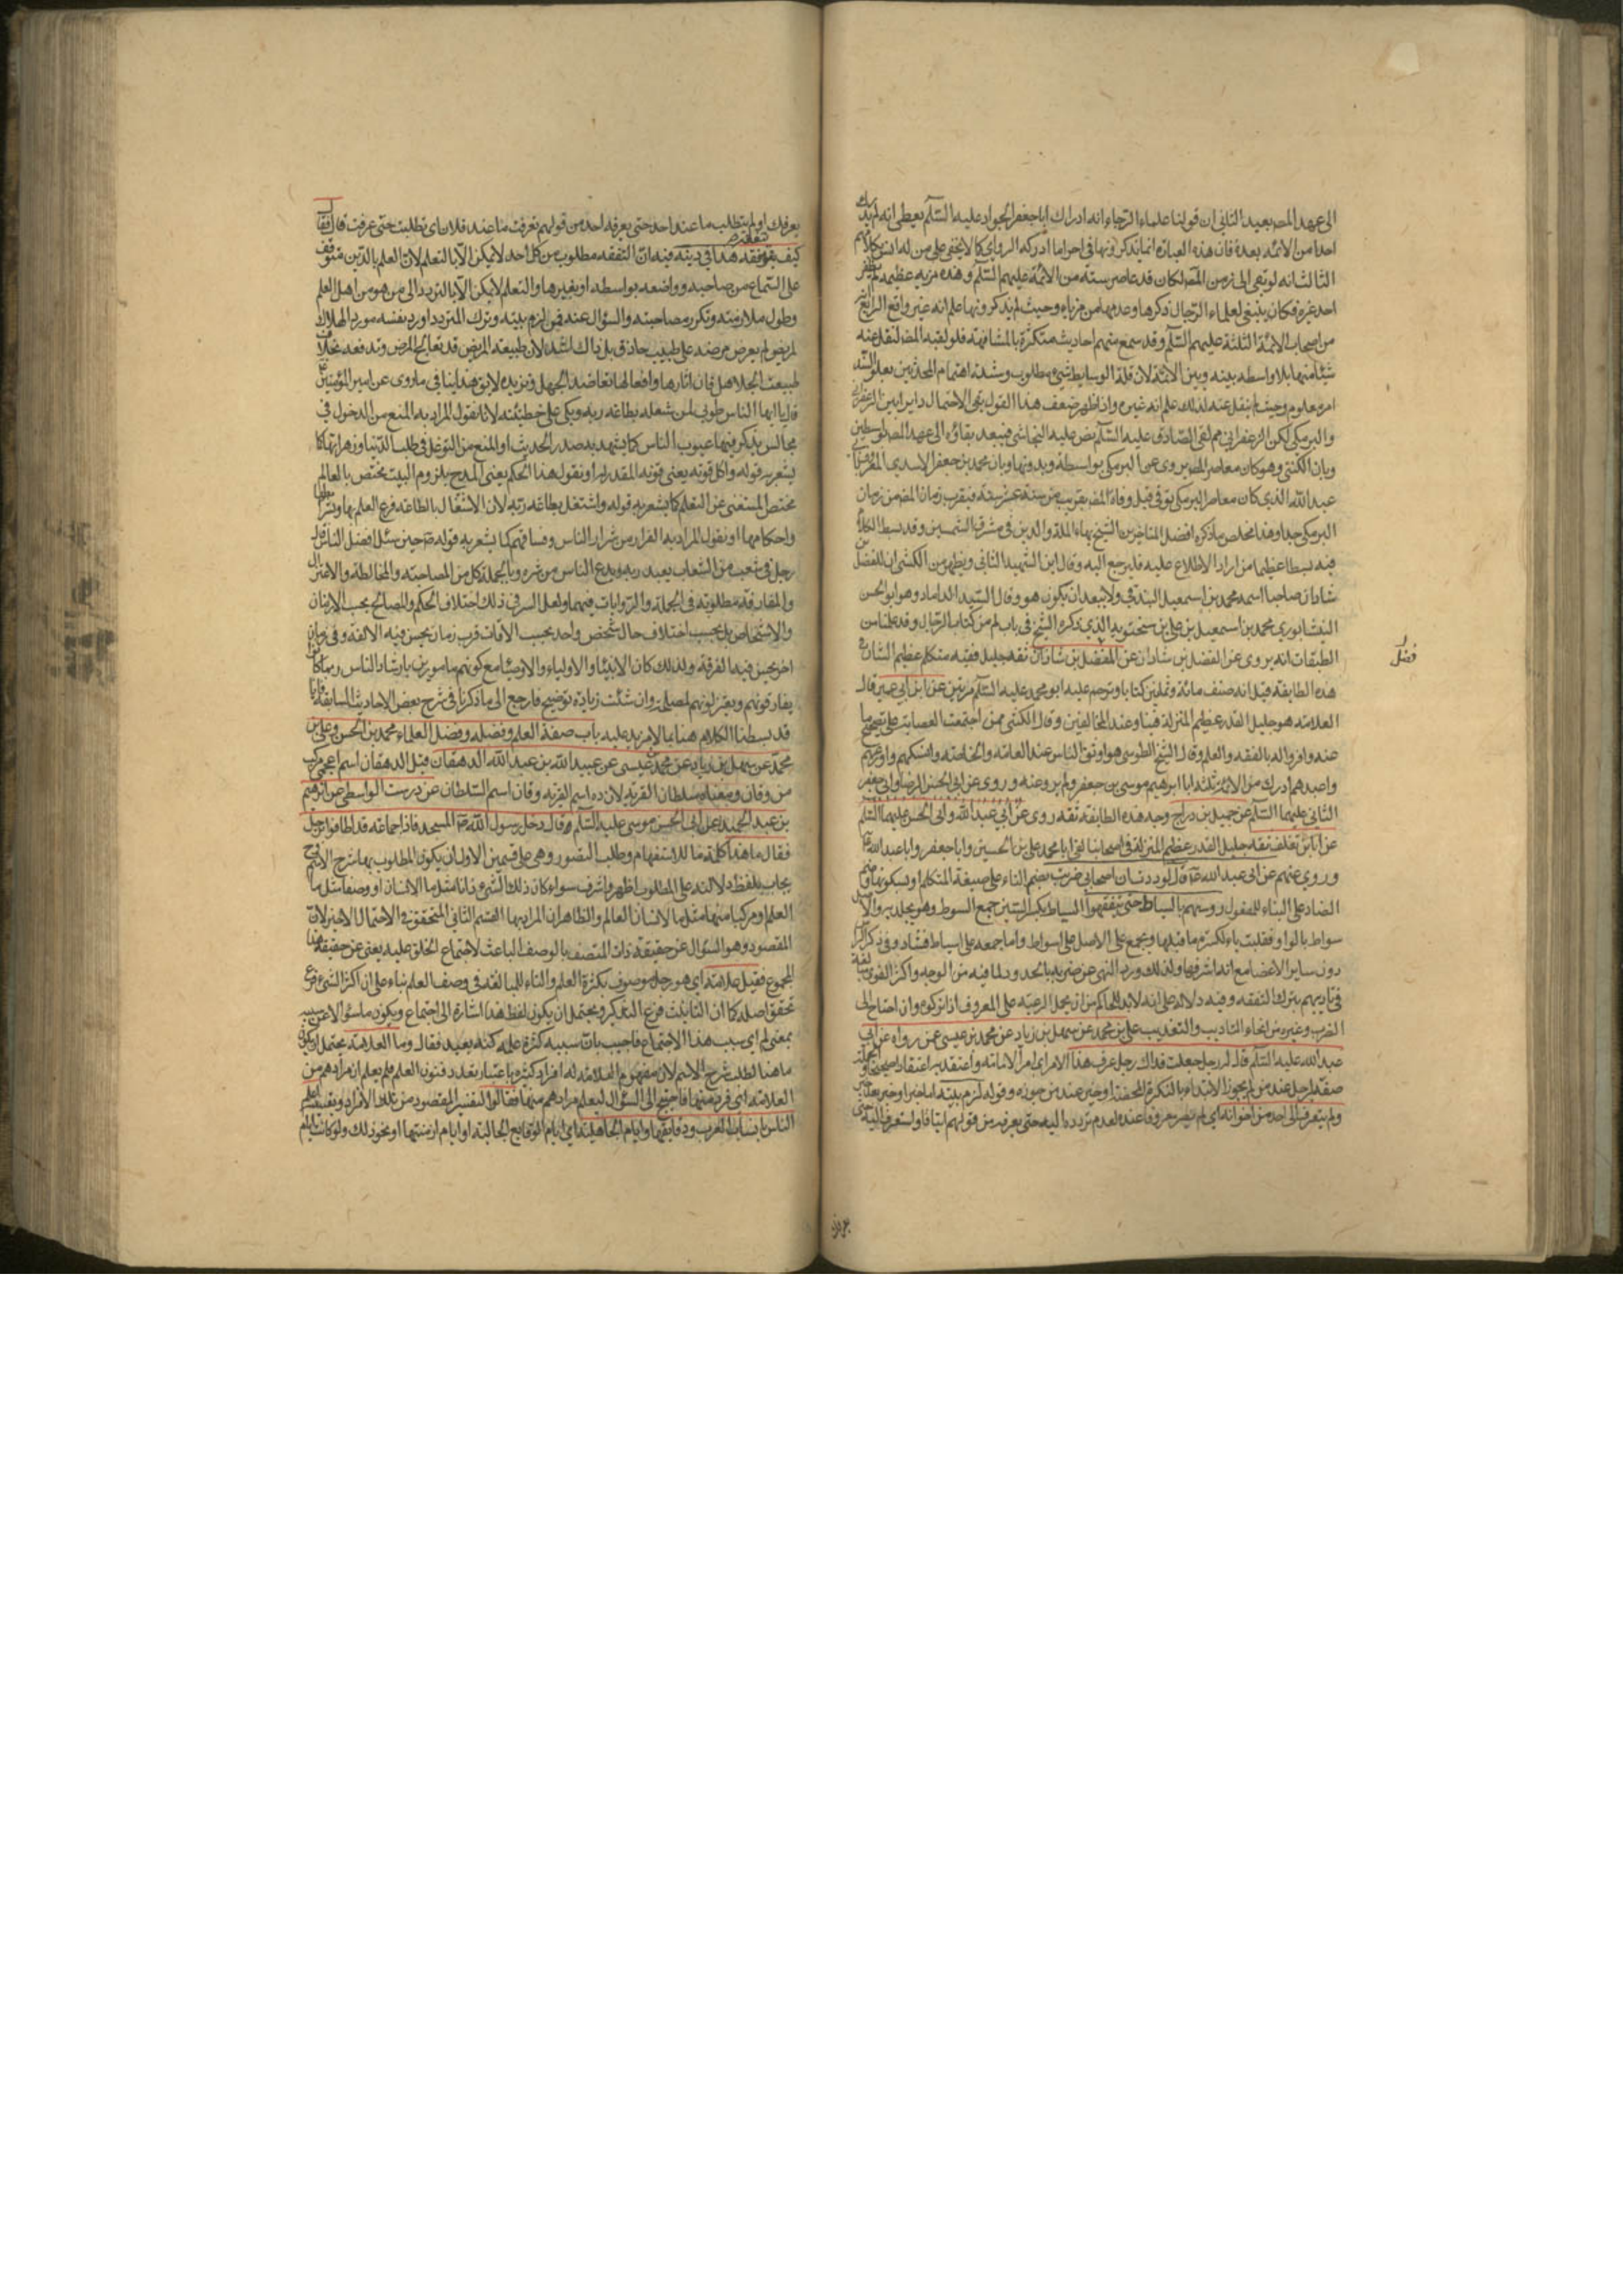 الى عهد المصـ بعيد الثانى ان قولنا علماء الرجال انه ادراك ابا جعفر الجواد عليه السّلم يعطى انه لم يدرك
احدا من الائمه بعده فان هذه العباره انما يذكرونها فى احر اما ادركه الراوى كما لا يخفى على من له انس بكلامهم
الثالث انه لو بقى الى زمن المصـ لكان قد عاصر ستة من الائمة عليهم السّلم وهذه مزيه عظيمه لم يظفر
احد غيره فكان ينبغى لعلماء الرجال ذكرها وعدها من مزاياه وحيث لم يذكرونها علم انه غير واقع الرابع انه
من اصحاب الائمة الثلثة عليهم السّلم وقد سمع منهم احاديث متكثرة بالمشافهة فلو لقيه المصـ لنقل عنه
شيئا منها بلا واسطه بينه وبين الائمة لان قلة الوسايط شىء مطلوب وشدة اهتمام المحدثين بعلو السّند
امر معلوم وحيث لم ينقل عنه لذلك علم انه غيره واذا ظهر ضعف هذا القول بقى الاحتمال دايرا بين الزعفرانى
والبرمكى لكن الزعفرانى ممن لقى الصّادق عليه السّلم نص عليه النجاشى فيبعد بقاؤه الى عهد المصـ
وبان الكشى وهو كان معاصر المصـ يروى عن البرمكى بواسطة وبدونها وبان محمد بن جعفر الاسدى المعروف
عبد الله الذى كان معاصر البرمكى توفى قبل وفاة المصـ بقريب من سنة عشر سنة فيقرب زمان المصـ من زمان
البرمكى جدا وهذا ملخص ما ذكره افضل المتاخرين الشيخ بهاء الملة والدين فى مشرق الشمسين وقد بسط الكلام
فيه بسطا عظيما من اراد الاطلاع عليه فليرجع اليه وقال ابن الشهيد الثانى ويظهر من الكشى ان للفضل
شاذان صاحبا اسمه محمد بن اسمعيل البندقى ولا يبعد ان يكون هو وقال السيد الداماد وهو ابو الحسن
النيشابورى محمد بن اسمعيل بن على بن سختويه الذى ذكره الشيخ فى باب لم من كتاب الرجال وقد علمنا من
الطبقات انه يروى عن الفضل بن شاذان عن الفضل بن شاذان ثقه جليل فقيه متكلم عظيم الشان فى
فضل
هذه الطايفة قيل انه صنف مائة وثمانين كتابا وترحم عليه ابو محمد عليه السّلم مرتين عن ابن ابى عمير قال
العلامه هو جليل القدر عظيم المنزلة فينا وعند المخالفين وقال الكشى ممن اجتمعت العصابة على تصحيح ما
عنه واقروا له بالفقه والعلم وقال الشيخ الطوسى هو اوثق الناس عند العامه والخاصة وانسكهم واورعهم
واعبدهم ادرك من الائمة ثلثة ابا ابرهيم موسى بن جعفر ولم يرو عنه وروى عن ابى الحسن الرضا وابى جعفر
الثانى عليهما السّلم عن جميل بن دراج وجه هذه الطايفة ثقه روى عن ابى عبد الله وابى الحسن عليهما السّلم
عن ابان بن تغلب ثقه جليل القدر عظيم المنزلة فى اصحابنا لقى ابا محمد على بن الحسين وابا جعفر وابا عبد الله
وروى عنهم عن ابى عبد الله قال لوددت ان اصحابى ضربت بضم التاء على صيغة المتكلم او بسكونها وضم
الضاد على البناء للمفعول روسهم بالسياط حتى يتفقهوا السياط بكسر السين جمع السوط وهو يجلد به والاصل
سواط بالواو فقلبت ياء لكسرة ما قبلها ويجمع على الاصل على اسواط واما جمعه على اسياط فشاذ وفى ذكر الراس
دون ساير الاعضا مع انه اشرفها ولذلك ورد النهى عن ضربه بالحد ولما فيه من الوجه واكثر القوى مبالغة
فى تاديبهم بترك التفقه وفيه دلالة على انه لابد للحاكم من ان يحمل الرعيه على المعروف اذا تركوه وان احتاج الى
الضرب وغيره من انحاء التاديب والتعذيب على بن محمد عن سهل بن زياد عن محمد بن عيسى عمن رواه عن ابى
عبد الله عليه السّلم قال له رجل جعلت فداك رجل عرف هذا الامر اى امر الامامة واعتقد به اعتقادا صحيحا
صفة لرجل عند من لم يجوز الابتداء بالنكرة المحضة او خبر عند من جوزه وقوله لزم بيته اما خبر او خبر بعد خبر
ولم يتعرف الى احد من اخوانه اى لم يصر معروفا عنده لعدم تردده اليه حتى يعرفه من قولهم ائت فلانا واستعرف اليه حتى
يعرفك
يعرفك او لم يتطلب ما عند احد حتى يعرفه احد من قولهم تعرفت ما عند فلان اى تطلبت حتى عرفت قال فقال
كيف يتفقه هذا فى دينه فيه ان التفقه مطلوب من كل احد لا يمكن الّا بالتعلم لان العلم بالدّين متوقف
على السّماع من صاحبه وواضعه بواسطه او بغيرها والتعلم لا يمكن الّا بالتردد الى من هو من اهل العلم
وطول ملازمته وتكرر مصاحبته والسؤال عنه فمن لزم بيته وترك التردد اورد نفسه مورد الهلاك
لمريض لم يعرض مرضه على طبيب حاذق بل ذاك اشد لان طبيعة المريض قد تعالج المرض وتدفعه بخلاف
طبيعة الجاهل فان اثارها وافعالها تعاضد الجهل وتزيده لا يق هذا ينافى ما روى عن امير المؤمنين
قال يا ايها الناس طوبى لمن شغله بطاعة ربه وبكى على خطيئته لانا نقول المراد به المنع من الدخول فى
مجالس يذكر فيها عيوب الناس كما يشهد به صدر الحديث او المنع من التوغل فى طلب الدّنيا وزهراتها كما
يشعر به قوله واكل قوته يعنى قوته المقدر له او نقول هذا الحكم يعنى المدح بلزوم البيت مختص بالعالم
مختص المستغنى عن التعلم كما يشعر به قوله واشتغل بطاعة ربّه لان الاشتغال بالطاعة فرع العلم بها وبشرايطها
واحكامها او نقول المراد به الفرار من شرار الناس وفساقهم كما يشعر به قوله حين سئل افضل الناس قال
رجل فى شعب من الشعاب يعبد ربه ويدع الناس من شره وبالجملة كل من المصاحبة والمخالطة والاعتزال
والمفارقة مطلوبة فى الجملة والروايات فيهما ولعل السر فى ذلك اختلاف الحكم والمصالح بحسب الازمان
والاشخاص بل بحسب اختلاف حال شخص واحد بحسب الاوقات فرب زمان يحسن فيه الالفة وفى زمان
اخر يحسن فيه الفرقة ولذلك كان الانبيا والاولياء والاوصيا مع كونهم مامورين بارشاد الناس ربما كانوا
يفارقونهم ويعتزلونهم لمصلحة وان شئت زيادة توضيح فارجع الى ما ذكرنا فى شرح بعض الاحاديث السابقة فانا
قد بسطنا الكلام هنا بما لا مزيد عليه باب صفة العلم وفضله وفضل العلماء محمد بن الحسن وعلى بن
محمد عن سهل بن زياد عن محمد بن عيسى عن عبيد الله بن عبد الله الدهقان قيل الدهقان اسم اعجمى مركب
من ده وقان ومعناه سلطان القرية لان ده اسم القرية وقان اسم السّلطان عن درست الواسطى عن ابرهيم
بن عبد الحميد عن ابى الحسن موسى عليه السّلم قال دخل رسول الله المسجد فاذا جماعة قد اطافوا برجل
فقال ما هذا كلمة ما للاستفهام وطلب التصور وهى على قسمين الاول ان يكون المطلوب بها شرح الاسم
يجاب بلفظ دلالته على المطلوب اظهر واشرف سواء كان ذلك الشىء ذاتا مثل ما الانسان او وصفا مثل ما
العلم او مركبا منهما مثل ما لانسان العالم والظاهر ان المراد بها القسم الثانى المتحقق فى الاحتمال الاخير لان
المقصود وهو السؤال عن حقيقة ذات المتصف بالوصف الباعث لاجتماع الخلق عليه يعنى عن حقيقة هذا
المجموع فقيل علامة اى هو رجل موصوف بكثرة العلم والتاء للمبالغه فى وصف العلم بناء على ان اكثر الشىء فرع
تحقق اصله كما ان التانيث فرع التذكير ويحتمل ان يكون لفظ هذا اشارة الى اجتماع ويكون ما سئوالا عن سببه
بمعنى لم اى سبب هذا الاجتماع فاجيب بان سببه كثرة علمه كنه بعيد فقال وما العلامة يحتمل ان يكون
ما هنا لطلب شرح الاسم لان مفهوم العلامه له افراد كثيره باعتبار تعدد فنون العلم فلم يعلم ان مرادهم من
العلامة اى فرد منها فاحتيج الى السؤال ليعلم مرادهم منها فقالوا لتفسير المقصود من تلك الافراد وتعيينه اعلم
الناس بانساب العرب ووقايعها وايام الجاهلية اى ايام الوقايع الحالية او ايام ازمنتها او نحو ذلك ولو كانت ايام